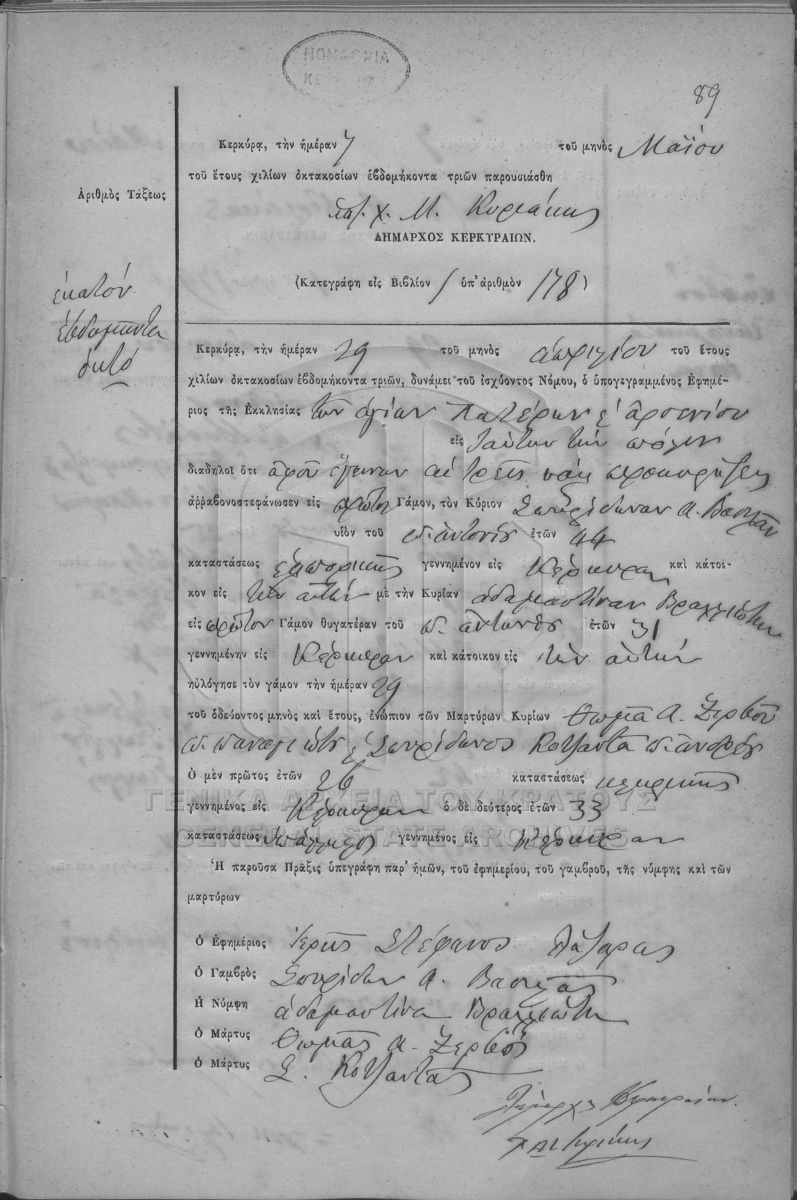 89
Κερκύρᾳ, τὴν ἡμέραν 7 τοῦ μηνὸς Μαΐου
τοῦ ἔτους χιλίων ὀκτακοσίων ἑβδομήκοντα τριῶν παρουσιάσθη
Ἀριθμὸς Τάξεως
χ. Μ. Κυριάκης
ΔΗΜΑΡΧΟΣ ΚΕΡΚΥΡΑΙΩΝ.
(Κατεγράφη εἰς Βιβλίον 1 ὑπ' ἀριθμὸν 178)
ἑκατόν
ἑβδομήκοντα
ὀκτό
Κερκύρᾳ, τὴν ἡμέραν 29 τοῦ μηνὸς ἀπριλίου τοῦ ἔτους
χιλίων ὀκτακοσίων ἑβδομήκοντα τριῶν, δυνάμει τοῦ ἰσχύοντος Νόμου, ὁ ὑπογεγραμμένος Ἐφημέ-
ριος τῆς Ἐκκλησίας τῶν ἁγίων Πατέρων ἀρσενίου
εἰς ταύτην τὴν πόλιν
διαδηλοῖ ὅτι ἀφοῦ ἔγειναν αἱ τρεῖς προκηρύξεις
ἀρραβονοστεφάνωσεν εἰς πρῶτον Γάμον, τὸν Κύριον Σπυρίδωναν Α. Βασιλᾶν
υἱὸν τοῦ ἀντονίου ἐτῶν 44
καταστάσεως ἐμπορικῆς γεννημένον εἰς Κέρκυραν καὶ κάτοι-
κον εἰς τὴν αὐτήν μὲ τὴν Κυρίαν ἀδαμαντίναν Βραχλιώτην
εἰς πρῶτον Γάμον θυγατέραν τοῦ ἐτῶν 31
γεννημένην εἰς Κέρκυραν καὶ κάτοικον εἰς τὴν αὐτήν
ηὐλόγησε τὸν γάμον τὴν ἡμέραν 29
τοῦ ὁδεύοντος μηνὸς καὶ ἔτους, ἐνώπιον τῶν Μαρτύρων Κυρίων Θωμᾶ Α. Ζερβοῦ
παναγιώτη Σπυρίδωνος Κοτζαντᾶ
Ὁ μὲν πρῶτος ἐτῶν 26 καταστάσεως κληρικῆς
γεννημένος εἰς Κέρκυραν ὁ δὲ δεύτερος ἐτῶν 33
καταστάσεως γεννημένος εἰς Κέρκυραν
Ἡ παροῦσα Πρᾶξις ὑπεγράφη παρ' ἡμῶν, τοῦ ἐφημερίου, τοῦ γαμβροῦ, τῆς νύμφης καὶ τῶν
μαρτύρων
ΓΕΝΙΚΑ ΑΡΧΕΙΑ ΤΟΥ ΚΡΑΤΟΥΣ
GENERAL STATE ARCHIVES
Ὁ Ἐφημέριος Ἱερεὺς Στέφανος Λάζαρας
Ὁ Γαμβρὸς Σπυρίδων Α. Βασιλᾶς
Ἡ Νύμφη ἀδαμαντίνα Βραχλιώτη
Ὁ Μάρτυς Θωμᾶς Α. Ζερβός
Ὁ Μάρτυς Σ. Κοτζαντᾶς